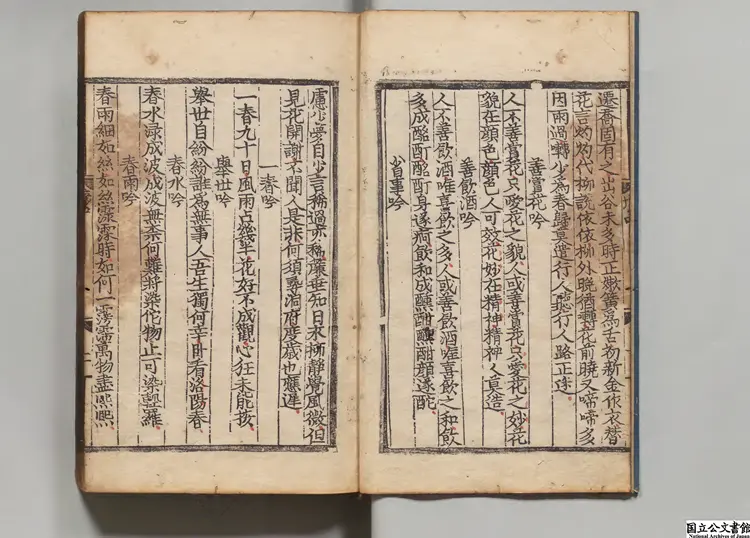 遷喬固有之出谷未多時正嫩簧爲舌初新金作衣替
花言灼灼代柳説依依柳外晩猶囀花前曉又啼啼多
因雨過囀少爲春歸莫遣行人聽行人路正迷
善賞花吟
人不善賞花只愛花之貌人或善賞花只愛花之妙花
貌在顔色顔色人可效花妙在精神精神人莫造
善飲酒吟
人不善飲酒唯喜飲之多人或善飲酒唯喜飲之和飲
多成酩酊酩酊身遂痾飲和成醺酣醺酣顔遂酡
省事吟
慮少夢自少言稀過亦稀簾垂知日永柳靜覺風微但
見花開謝不聞人是非何須尋洞府度歳也應遲
一春吟
一春九十日風雨占幾半花好不成觀心狂未能按
舉世吟
舉世自紛紛誰爲無事人吾生獨何幸卧看洛陽春
春水吟
春水淥成波成波無柰何雖將染佗物止可染輕羅
春雨吟
春雨細如絲如絲霡霂時如何一霶霈萬物盡熈熈
国立公文書館
National Archives of Japan